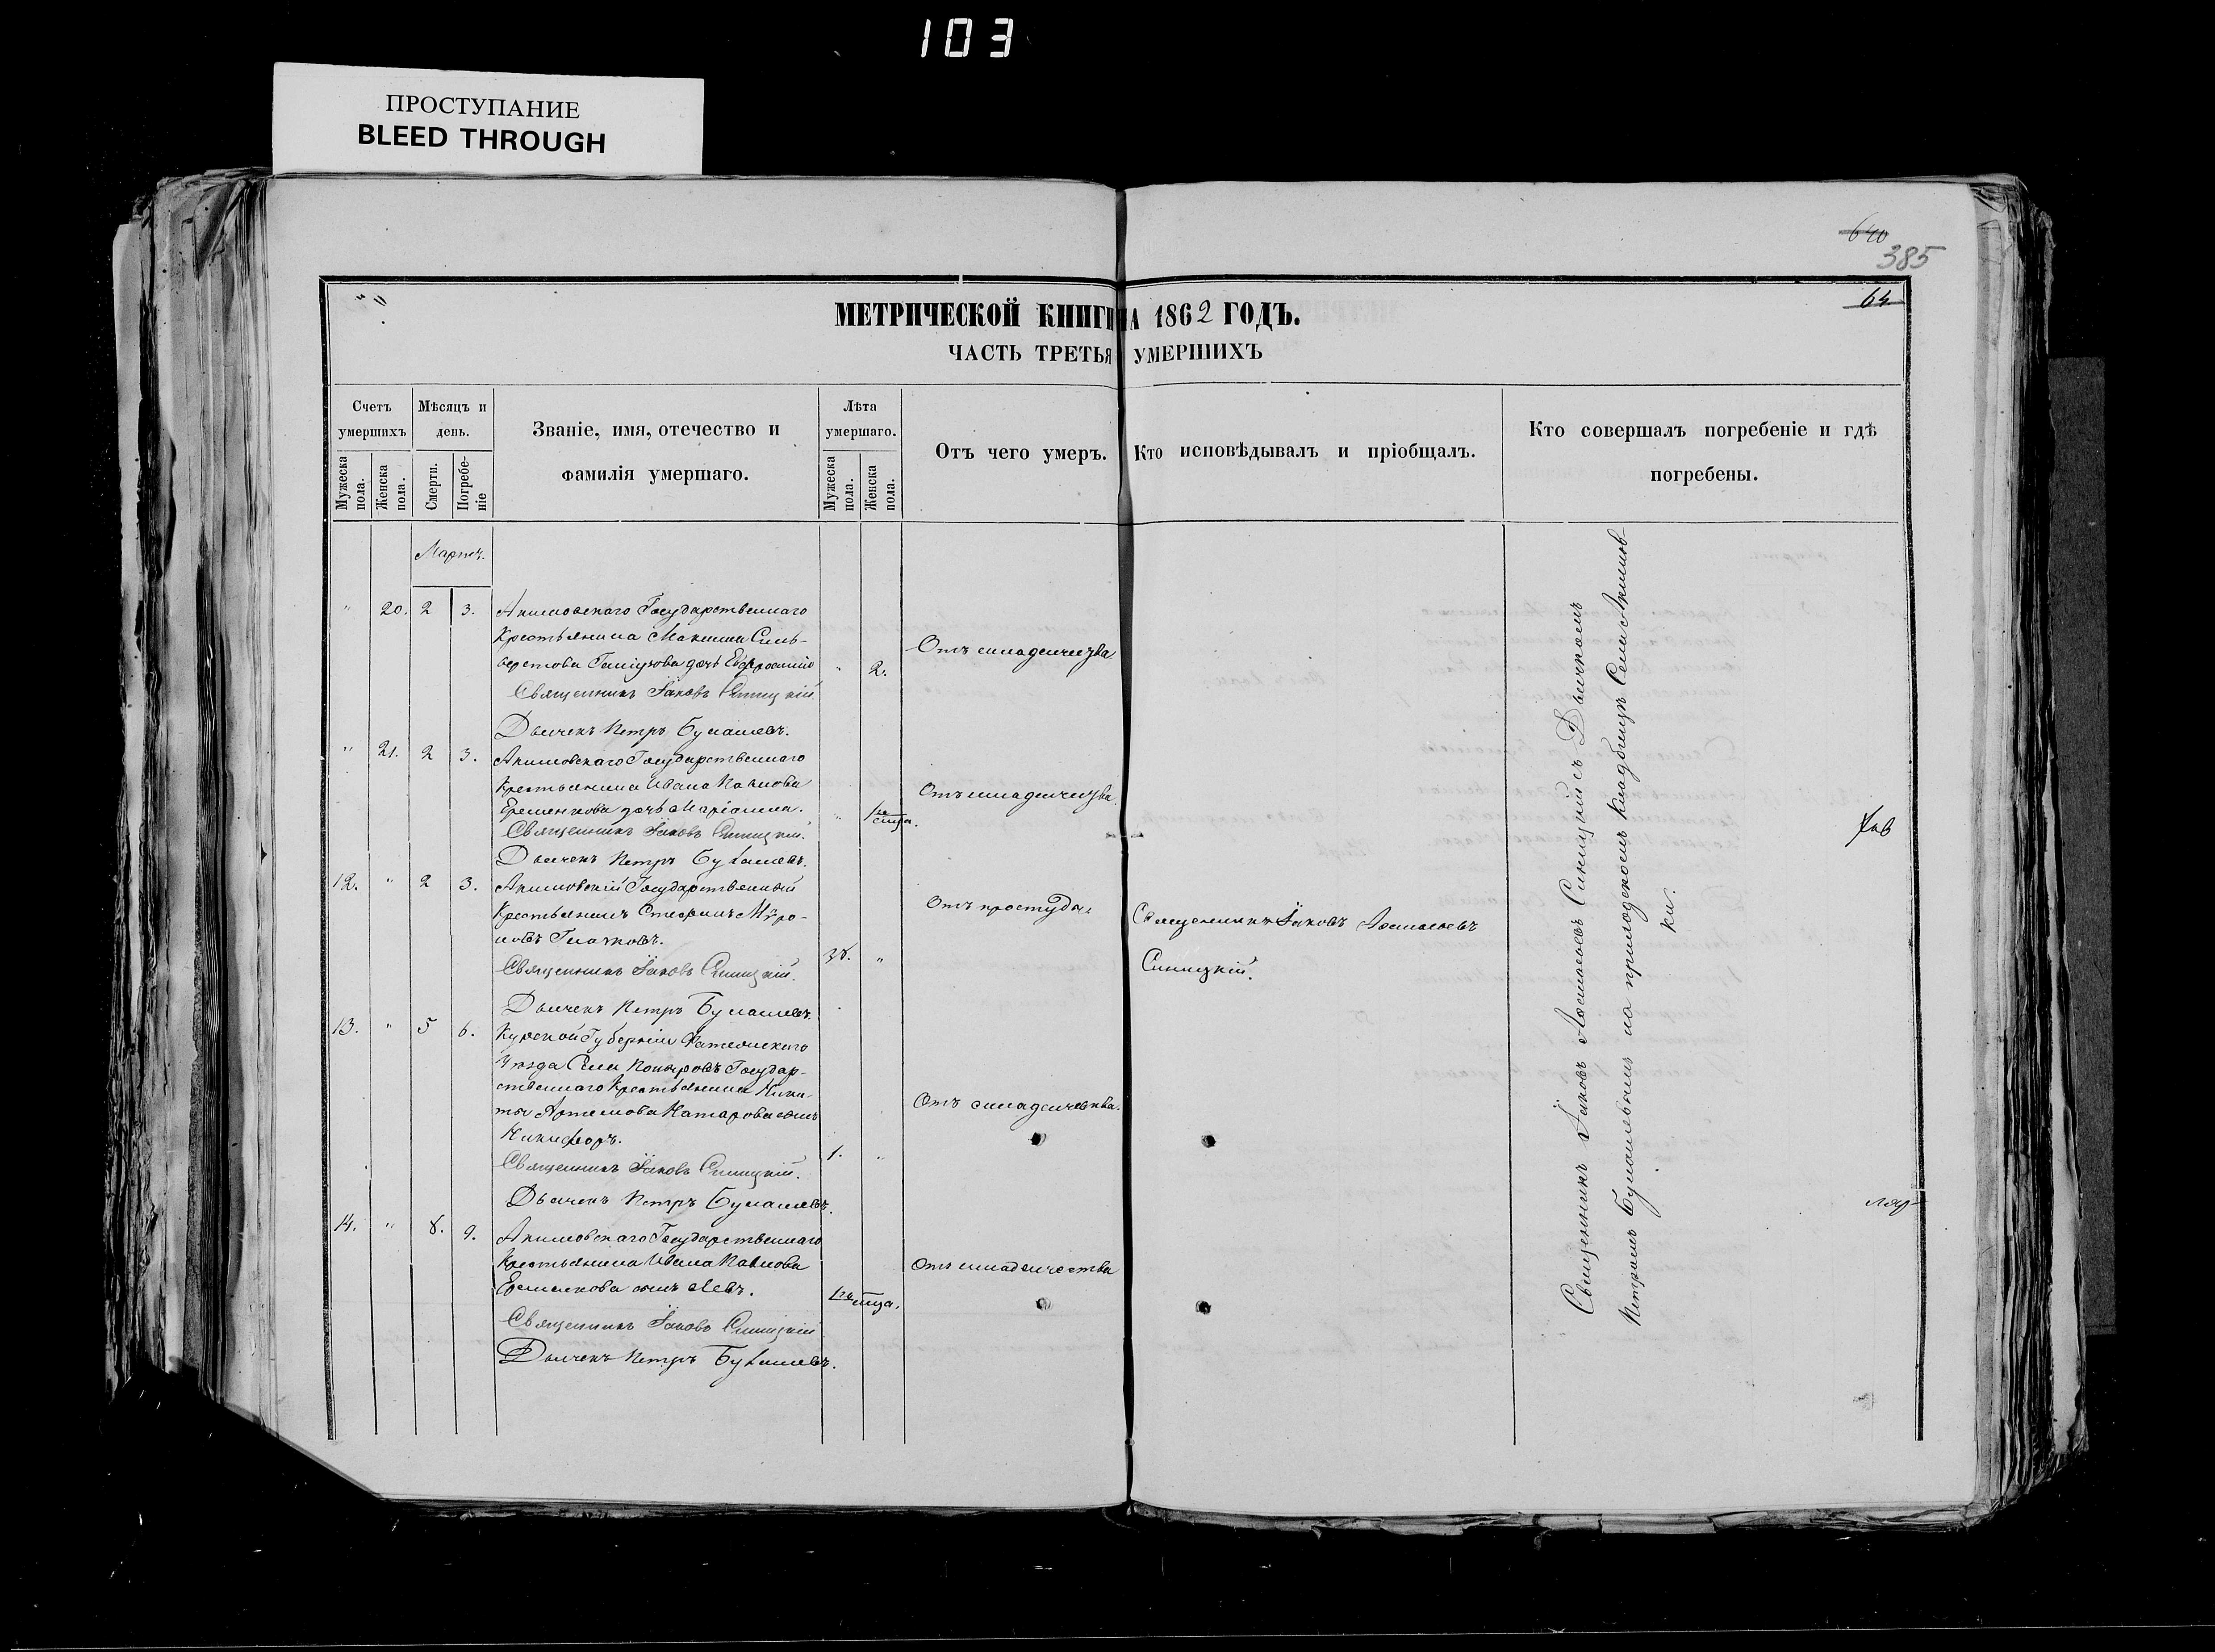 103
ПРОСТУПАНИЕ
BLEED THROUGH
640
385
64
МЕТРИЧЕСКОЙ КНИГИ НА 1862 ГОДЪ.
ЧАСТЬ ТРЕТЬЯ УМЕРШИХЪ
Счетъ умершихъ
Мужеска пола.
Женска пола.
Мѣсяцъ и день.
Смерти.
Погребеніе
Званіе, имя, отечество и
фамилія умершаго.
Лѣта умершаго.
Мужеска пола.
Женска пола.
Отъ чего умеръ.
Кто исповѣдывалъ и пріобщалъ.
Кто совершалъ погребеніе и гдѣ
погребены.
Мартъ.
" 20. 2 3. Акимовскаго Государственнаго
Крестьянина Максима Силь-
верстова дочь Евфросинія " 2. Отъ младенчества
Священникъ Іаковъ Синицкій.
Дьячекъ Петръ Булашевъ.
" 21. 2 3. Акимовскаго Государственнаго
Крестьянина Ивана Павлова
Еременкова дочь Маріанна. " Отъ младенчества
Священникъ Іаковъ Синицкій.
Дьячекъ Петръ Булашевъ.
12. " 2 3. Акимовскій Государственный
Крестьянинъ Стефанъ Мѵро-
новъ 38. " Отъ простуды Священникъ Іаковъ Афанасьевъ
Синицкій.
Священникъ Іаковъ Синицкій.
Дьячекъ Петръ Булашевъ.
13. " 5 6. Курской Губерніи Фатежскаго
Уѣзда Села Поныровъ Государ-
ственнаго Крестьянина Ники-
ты Артемова сынъ
Никифоръ. 1. " Отъ младенчества.
Священникъ Іаковъ Синицкій.
Дьячекъ Петръ Булашевъ.
14. " 8. 9. Акимовскаго Государственнаго
Крестьянина Ивана Павлова
Еременкова сынъ Левъ. Отъ младенчества
Священникъ Іаковъ Синицкій
Дьячекъ Петръ Булашевъ.
Священникъ Іаковъ Афанасьевъ Синицкій съ Дьячкомъ
Петромъ Булашевымъ на приходскомъ кладбищѣ Села Акимов-
ки.